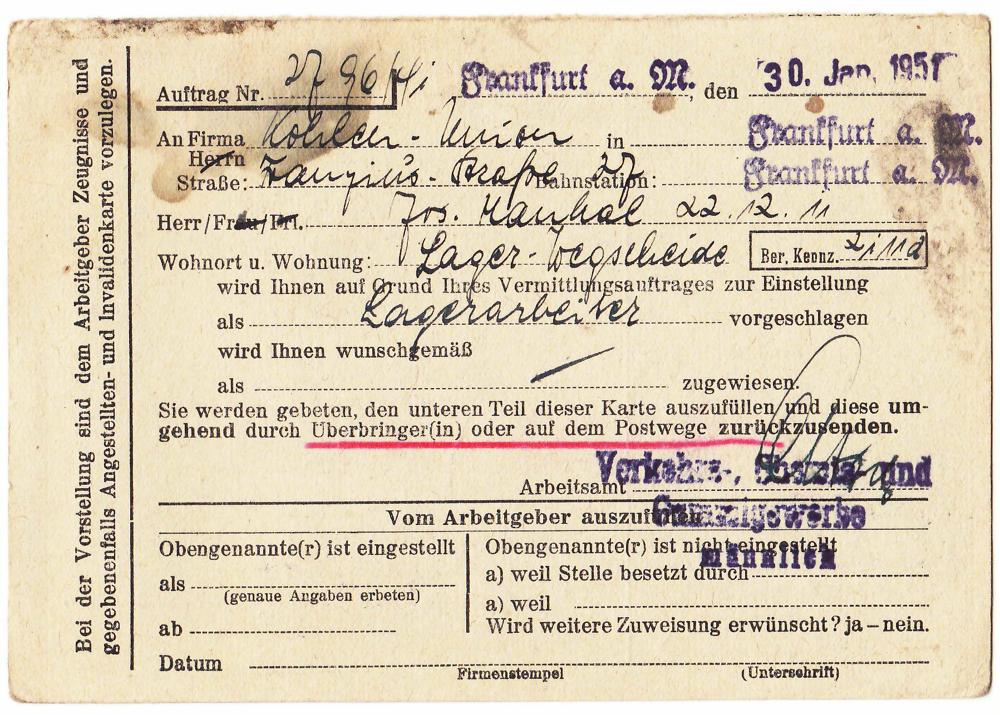 Bei der Vorstellung sind dem Arbeitgeber Zeugnisse und
gegebenenfalls Angestellten- und Invalidenkarte vorzulegen.
Auftrag Nr. 2796 Frankfurt a. M., den 30. Jan. 1951
An Firma Kohlen-Union in Frankfurt a. M.
Herrn
Straße: Franziusstraße 27 Bahnstation: Frankfurt a. M.
Herr/Frau/Frl. Jos. 22.12.11
Wohnort u. Wohnung: Lager-Wegscheide Ber. Kennz.
wird Ihnen auf Grund Ihres Vermittlungsauftrages zur Einstellung
als Lagerarbeiter vorgeschlagen
wird Ihnen wunschgemäß
als zugewiesen.
Sie werden gebeten, den unteren Teil dieser Karte auszufüllen und diese um-
gehend durch Überbringer(in) oder auf dem Postwege zurückzusenden.
Verkehrs-, und
Arbeitsamt
Vom Arbeitgeber auszufüllen
männlich
Obengenannte(r) ist eingestellt
als
(genaue Angaben erbeten)
ab
Obengenannte(r) ist nicht eingestellt
a) weil Stelle besetzt durch
a) weil
Wird weitere Zuweisung erwünscht? ja – nein.
Datum
Firmenstempel (Unterschrift)